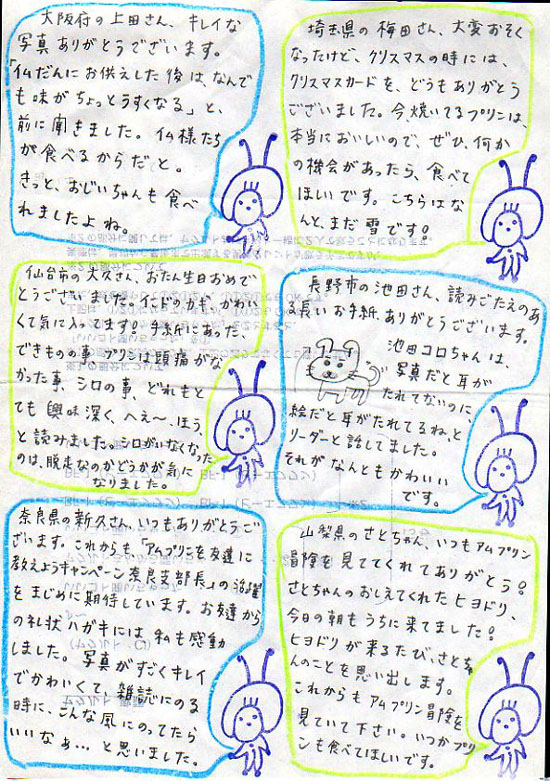 大阪府の上田さん、キレイな
写真ありがとうございます。
「仏だんにお供えした後は、なんで
も味がちょっとうすくなる」と、
前に聞きました。仏様たち
が食べるからだと。
きっと、おじいちゃんも食べ
れましたよね。
埼玉県の梅田さん、大変おそく
なったけど、クリスマスの時には、
クリスマスカードを、どうもありがとう
ございました。今焼いてるプリンは、
本当においしいので、ぜひ、何か
の機会があったら、食べて
ほしいです。こちらはな
んと、まだ雪です!
仙台市の大久さん、おたん生日おめで
とうございました。インドのカギ、かわい
くて気に入ってます!手紙にあった、
できものの事、プリンは頭痛がな
かった事、シロの事、どれもと
ても興味深く、へえ~、ほう
と読みました。シロがいなくなった
のは、脱走なのかどうかが気に
なりました。
長野市の池田さん、読みごたえのあ
る長いお手紙、ありがとうございます。
池田コロちゃんは、
写真だと耳が
たれてないのに、
絵だと耳がたれてるね、と
リーダーと話してました。
それがなんともかわいい
です。
奈良県の新久さん、いつもありがとうご
ざいます。これからも「アムプリンを友達に
教えようキャンペーン奈良支部長」の活躍
をまじめに期待しています。お友達から
の礼状ハガキには、私も感動
しました。写真がすごくキレイ
でかわいくて、雑誌にのる
時に、こんな風にのってたら
いいなぁ…と思いました。
山梨県のさとちゃん、いつもアムプリン
冒険を見ててくれてありがとう!
さとちゃんのおしえてくれたヒヨドリ、
今日の朝もうちに来てました!
ヒヨドリが来るたび、さとちゃ
んのことを思い出します。
これからもアムプリン冒険を
見ていて下さい。いつかプリ
ンも食べてほしいです。